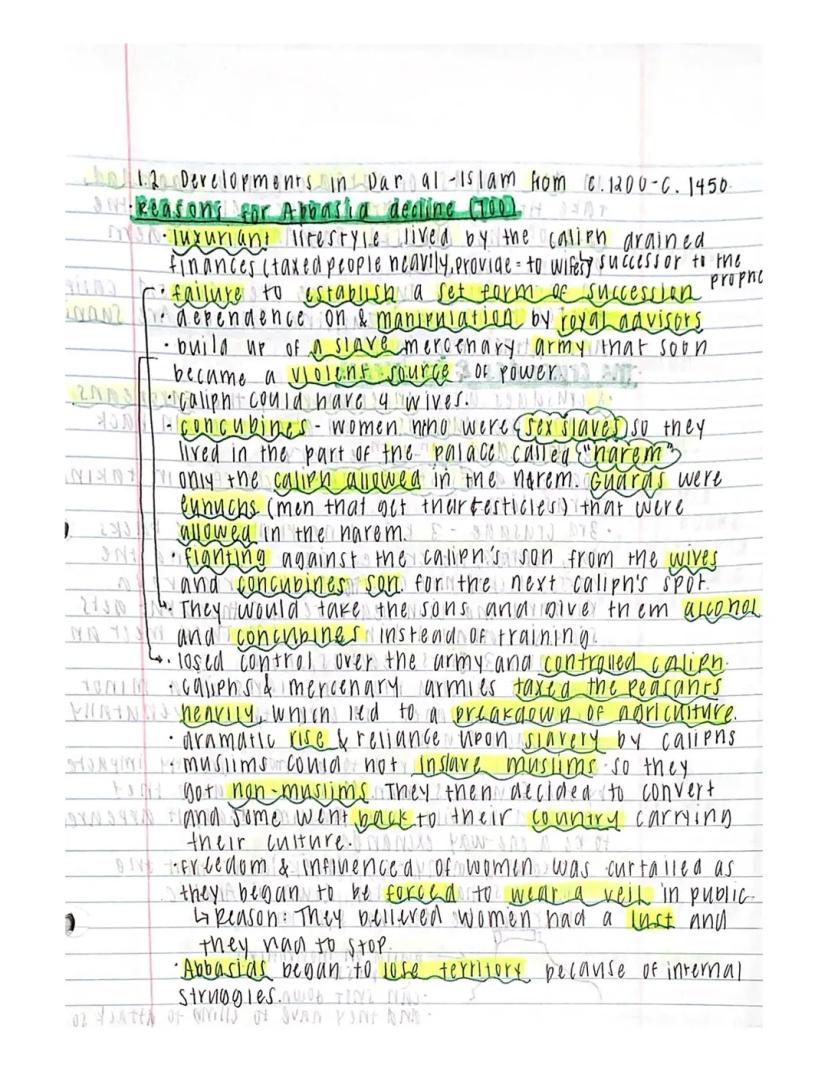 1.2 Developments in Dar al-Islam from c.1200-c. 1450.
Reasons for Abbasid decline (TOO)
· luxuriant lifestyle lived by the caliph drained
finances (taxed people heavily, provide = to wifes) ↳ successor to the
prophe
· failure to establish a set form of succession
· dependence on & manipulation by royal advisors
· build up of a slave mercenary army that soon
became a violent source of power.
· caliph could have 4 wives.
· concubines - women who were sex slaves so they
lived in the part of the palace called "harem"
only the caliph allowed in the harem. Guards were
eunuchs (men that get their testicles) that were
allowed in the harem.
· fighting against the caliph's son from the wives
and concubines son for the next caliph's spot.
→· They would take the sons and give them alcohol
and concubines instead of training.
→· losed control over the army and controlled caliph.
· caliphs & mercenary armies taxed the peasants
heavily, which led to a breakdown of agriculture.
· dramatic rise & reliance upon slavery by caliphs
muslims could not inslave muslims so they
got non-muslims. They then decided to convert
and some went back to their country carrying
their culture.
· Freedom & influenced of women was curtailed as
they began to be forced to wear a veil in public.
↳ Reason: They believed women had a lust and
they had to stop.
· Abbasids began to lose territory because of internal
struggles.